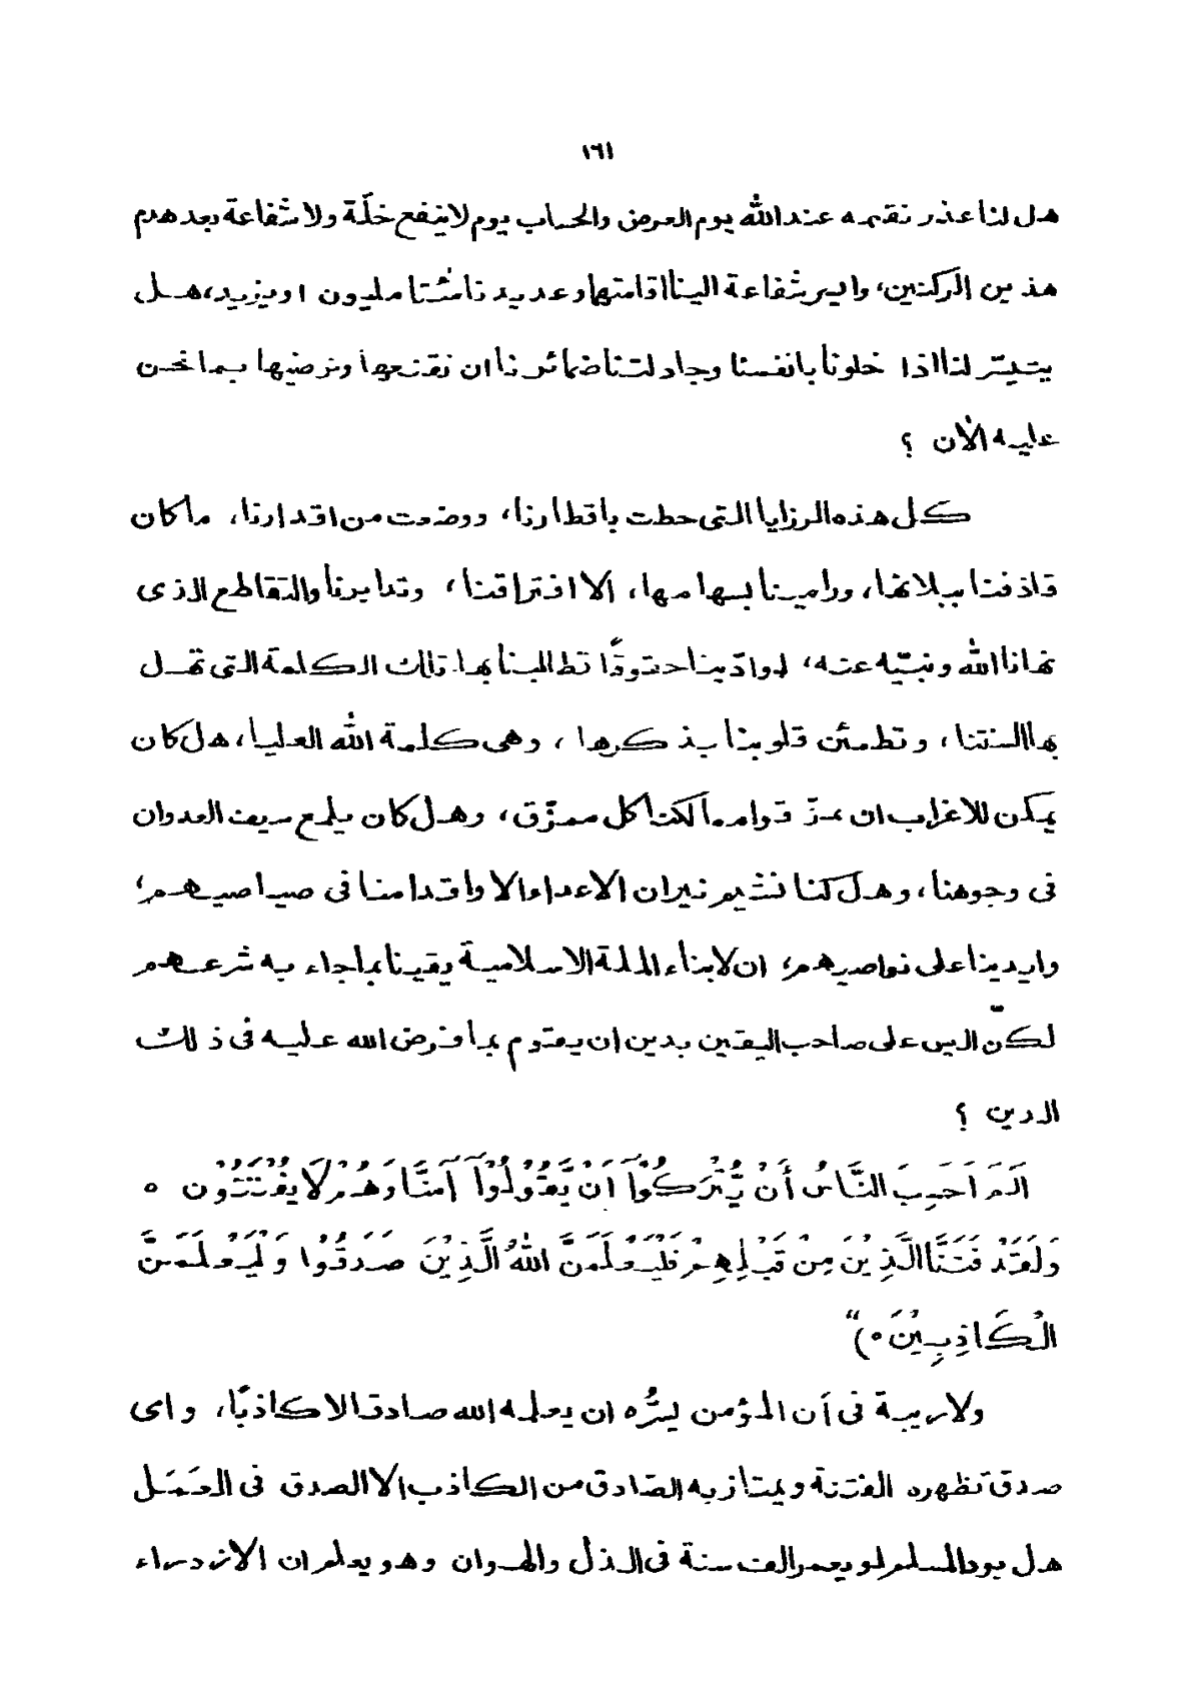 ١٦١
هل لنا عذر نقيمه عند الله يوم العرض والحساب يوم لا ينفع خلّة ولا شفاعة بعد هدم
هذين الركنين، وايسر شفاعة الينا اقامتها وعديدنا مئتا مليون او يزيد، هل
يتيسّر لنا اذا خلونا بانفسنا وجادلتنا ضمائرنا ان نقنعها ونرضيها بما نحن
عليه الأن ؟
كل هذه الرزايا التى حطت باقطارنا، ووضعت من اقدارنا، ماكان
قاذفنا ببلائها، ورامينا بسهامها، الا افتراقنا، وتدابرنا والتقاطع الذى
نهانا الله ونبيّه عنه، لوادّينا حقوقًا تطالبنا بها تلك الكلمة التى تهل
بها السنتنا، وتطمئن قلوبنا بذكرها ، وهى كلمة الله العليا، هل كان
يمكن للاغراب ان تمزّقوا ممالكنا كل ممزّق، وهل كان يلمع سيف العدوان
فى وجوهنا، وهل كنا نشيم نيران الاعداء الا واقدامنا فى صياصيهم؛
وايدينا على نواصيهم، ان لابناء الملة الاسلامية يقينا بماجاء به شرعهم
لكنّ اليس على صاحب اليقين بدين ان يقوم بما فرض الله عليه فى ذلك
الدين ؟
الَمَ اَحَسِبَ النَّاسُ أَنْ يُّتْرَكُوْآ اَنْ يَّقُوْلُوْآ آمَنَّا وَهُمْ لَا يُفْتَنُوْن ٥
وَلَقَدْ فَتَنَّا الَّذِيْنَ مِنْ قَبْلِهِمْ فَلَيَعْلَمَنَّ اللهُ الَّذِيْنَ صَدَقُوْا وَلَيَعْلَمَنَّ
الْكَاذِبِيْنَ ٥)"
ولا ريبة فى أن المؤمن يسُّره ان يعلمه الله صادقا لا كاذبًا، واى
صدق تظهره الفتنة ويمتاز به الصّادق من الكاذب الا الصدق فى العَمَل
هل يود المسلم لو يعمر الف سنة فى الذل والهوان وهو يعلم ان الازدراء